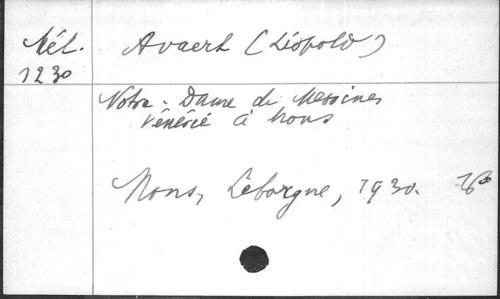 Mél. Avaert (Léopold)
1230
Notre-Dame de Messines
vénérée à Mons
Mons, Leborgne, 1930.